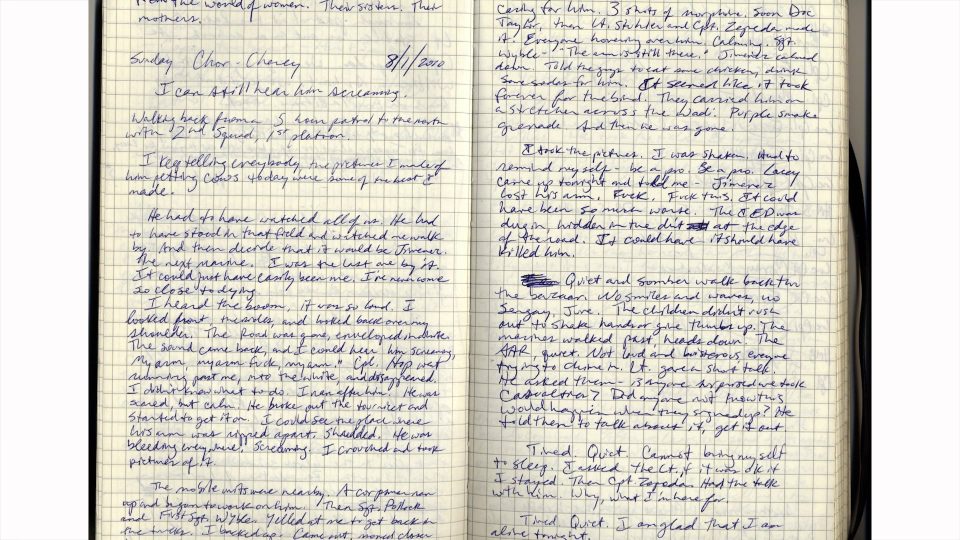 the world of women. Their sisters. Their
mothers.
Sunday Char-Cheney 8/1/2010
I can still hear him screaming.
Walking back from a 5 hour patrol to the north
with 2nd Squad, 1st platoon.
I keep telling everybody the pictures I made of
him petting cows today were some of the best I
made.
He had to have watched all of us. He had
to have stood in that field and watched me walk
by. And then decide that it would be Jimenez.
The next marine. I was the last one by it.
It could just have easily been me. I've never come
so close to dying.
I heard the boom, it was so loud. I
looked front, the sides, and looked back over my
shoulder. The Road was gone, enveloped in white.
The sound came back, and I could hear him screaming,
My arm, my arm fuck, my arm." Cpl. Hop was
running past me, into the white, and disappeared.
I didn't know what to do. I ran after him. He was
scared, but calm. He broke out the tourniquet and
started to get it on. I could see the place where
his arm was ripped apart. Shredded. He was
bleeding everywhere, screaming. I crouched and took
pictures of it.
The mobile units were nearby. A corpsman ran
up and began to work on him. Then Sgt. Pollock
and First Sgt. Wyble. Yelled at me to get back to
the trucks. I backed up. Came out, moved closer
caring for him. 3 shots of morphine. Soon Doc
Taylor, then Lt. Stuhler and Cpt. Zepeda made
it. Everyone hovering over him. Calming. Sgt.
Wyble - "The arm is still there." Jimenez calmed
down. Told the guys to eat some chicken, drink
some sodas for him. It seemed like it took
forever for the bird. They carried him on
a stretcher across the wadi. Purple smoke
grenade. And then he was gone.
I took the pictures. I was shaken. Had to
remind myself - be a pro. Be a pro. Lacey
came up tonight and told me - Jimenez
lost his arm. Fuck. Fuck this. It could
have been so much worse. The IED was
dug in, hidden in the dirt at the edge
of the road. It could have it should have
killed him.
Quiet and somber walk back thru
the bazaar. No smiles and waves, no
Sengay, Jure. The children didn't rush
out to shake hands or give thumbs up. The
marines walked past, heads down. The
AAR, quiet. Not loud and boisterous, everyone
trying to chime in. Lt. gave a short talk.
He asked them - is anyone surprised we took
Casualties? Did anyone not know this
would happen when they signed up? He
told them to talk about it, get it out.
Tired. Quiet. Cannot bring myself
to sleep. I asked the Lt. if it was ok if
I stayed. Then Cpt. Zepeda. Had the talk
with him. Why, what I'm here for.
Tired. Quiet. I am glad that I am
alive tonight.